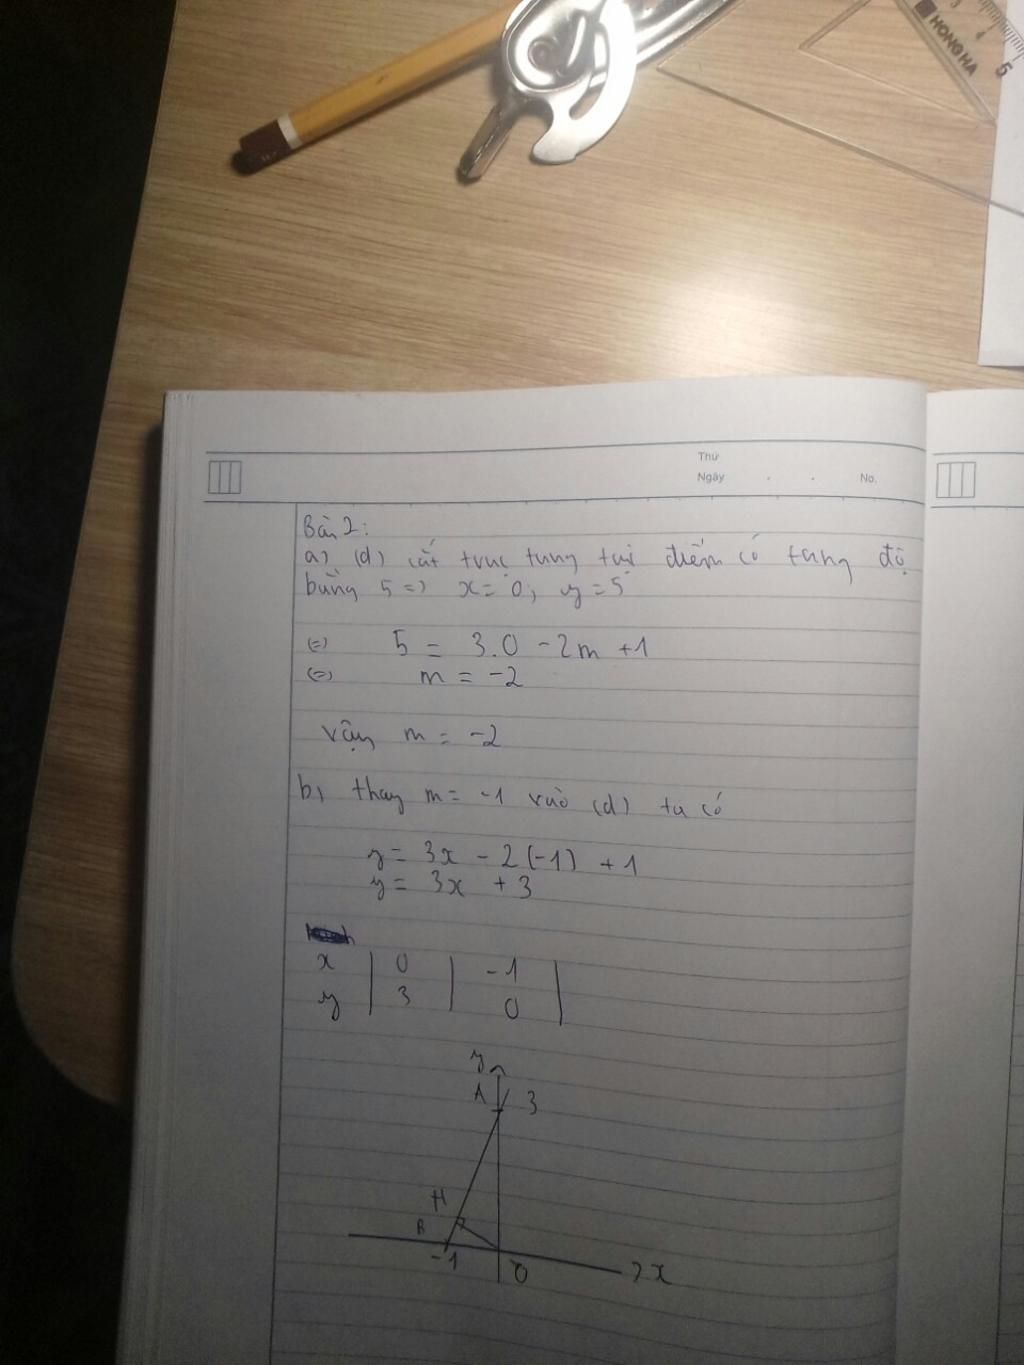 HONG HA
3
4
5
Thứ
Ngày . . No.
Bài 2:
a) (d) cắt trục tung tại điểm có tung độ
bằng 5 => x = 0; y = 5
(=) 5 = 3.0 - 2m + 1
(=) m = -2
vậy m = -2
b, thay m = -1 vào (d) ta có
y = 3x - 2(-1) + 1
y = 3x + 3
x | 0 | -1 |
y | 3 | 0 |
y
A 3
H
B
-1 O x